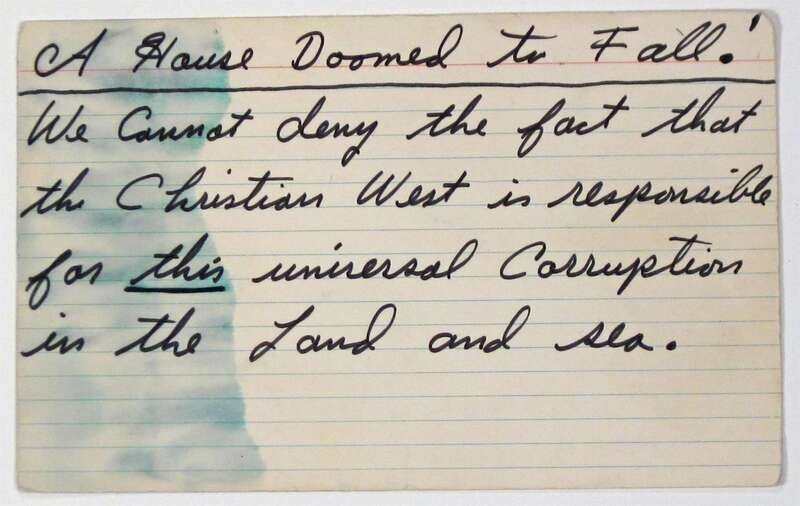 A House Doomed to Fall!
We Cannot deny the fact that
the Christian West is responsible
for this universal Corruption
in the Land and sea.